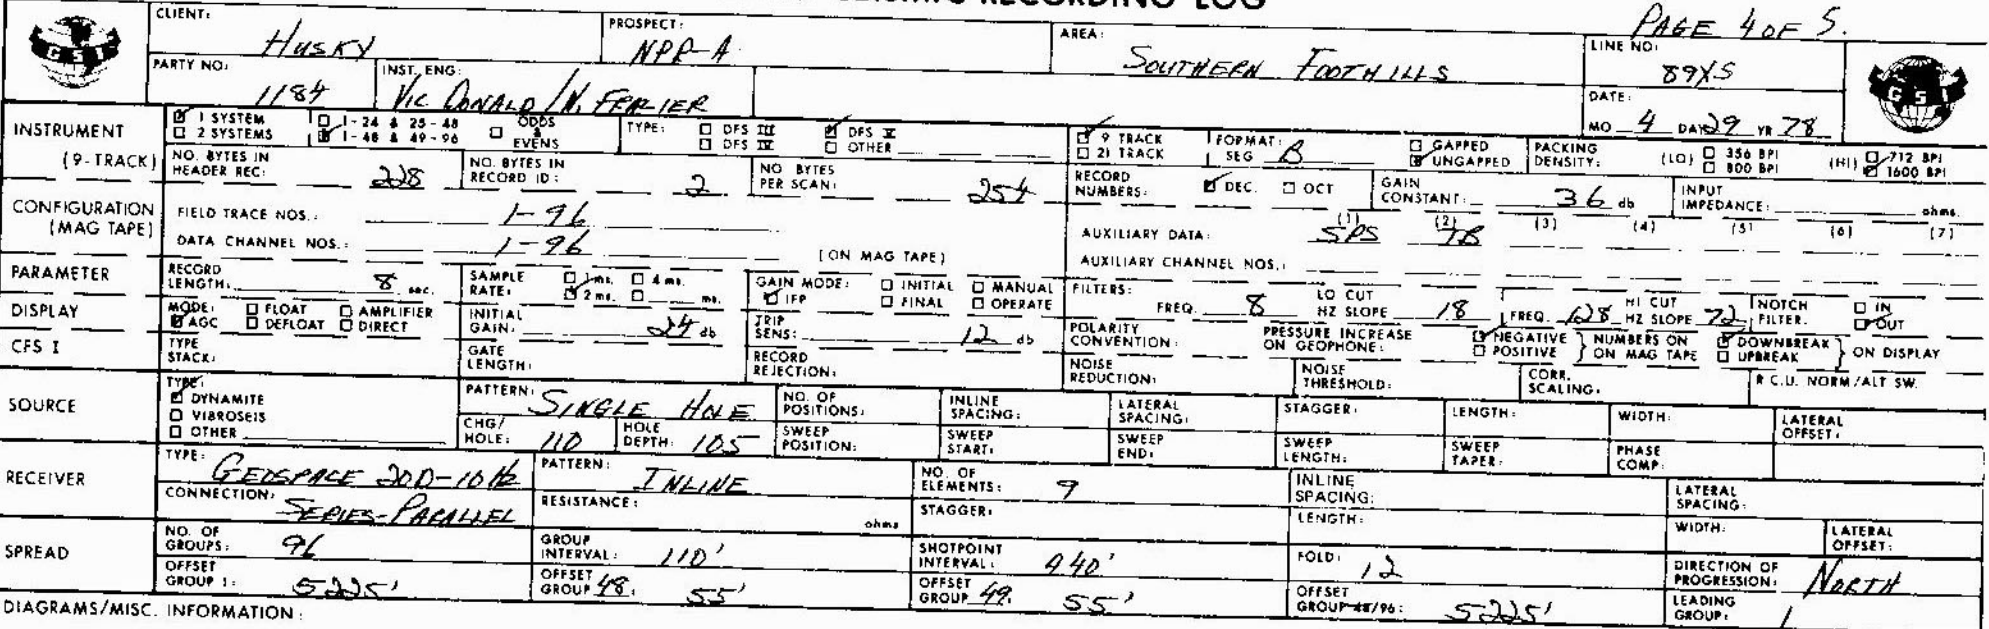 SEISMIC RECORDING LOG
PAGE 4 OF 5.
GSI
CLIENT: HUSKY
PROSPECT: NPR-A
AREA: SOUTHERN FOOTHILLS
LINE NO: 89XS
GSI
PARTY NO: 1184
INST. ENG: VIC DONALD / N. FRAZIER
DATE: MO 4 DAY 29 YR 78
INSTRUMENT (9-TRACK)
1 SYSTEM 2 SYSTEMS
1-24 & 25-48 1-48 & 49-96
ODDS & EVENS
TYPE: DFS III DFS IV DFS V OTHER
9 TRACK 21 TRACK
FORMAT: SEG B
GAPPED UNGAPPED
PACKING DENSITY: (LO) 356 BPI 800 BPI (HI) 712 BPI 1600 BPI
NO. BYTES IN HEADER REC: 228
NO. BYTES IN RECORD ID: 2
NO BYTES PER SCAN: 254
RECORD NUMBERS: DEC. OCT
GAIN CONSTANT: 36 db
INPUT IMPEDANCE: ohms.
CONFIGURATION (MAG TAPE)
FIELD TRACE NOS.: 1-96
DATA CHANNEL NOS.: 1-96 (ON MAG TAPE)
AUXILIARY DATA: (1) SPS (2) TB (3) (4) (5) (6) (7)
AUXILIARY CHANNEL NOS.:
PARAMETER
RECORD LENGTH: 8 sec.
SAMPLE RATE: 1 ms. 4 ms. 2 ms. ms.
GAIN MODE: INITIAL MANUAL IFP FINAL OPERATE
FILTERS: FREQ. 8 LO CUT HZ SLOPE 18 FREQ. 128 HI CUT HZ SLOPE 72
NOTCH FILTER. IN OUT
DISPLAY
MODE: FLOAT AMPLIFIER AGC DEFLOAT DIRECT
INITIAL GAIN: 24 db
TRIP SENS: 12 db
POLARITY CONVENTION: PRESSURE INCREASE ON GEOPHONE: NEGATIVE POSITIVE } NUMBERS ON ON MAG TAPE DOWNBREAK UPBREAK } ON DISPLAY
CFS I
TYPE STACK:
GATE LENGTH:
RECORD REJECTION:
NOISE REDUCTION:
NOISE THRESHOLD:
CORR. SCALING.
R C.U. NORM/ALT SW.
SOURCE
TYPE: DYNAMITE VIBROSEIS OTHER
PATTERN: SINGLE HOLE
NO. OF POSITIONS:
INLINE SPACING:
LATERAL SPACING:
STAGGER:
LENGTH:
WIDTH:
LATERAL OFFSET:
CHG/HOLE: 110
HOLE DEPTH: 105
SWEEP POSITION:
SWEEP START:
SWEEP END:
SWEEP LENGTH:
SWEEP TAPER:
PHASE COMP:
RECEIVER
TYPE: GEOSPACE 20D-10 Hz
PATTERN: INLINE
NO. OF ELEMENTS: 9
INLINE SPACING:
LATERAL SPACING:
CONNECTION: SERIES-PARALLEL
RESISTANCE: ohms
STAGGER:
LENGTH:
WIDTH:
LATERAL OFFSET:
SPREAD
NO. OF GROUPS: 96
GROUP INTERVAL: 110'
SHOTPOINT INTERVAL: 440'
FOLD: 12
DIRECTION OF PROGRESSION: NORTH
OFFSET GROUP 1: 5225'
OFFSET GROUP 48: 55'
OFFSET GROUP 49: 55'
OFFSET GROUP 48/96: 5225'
LEADING GROUP: 1
DIAGRAMS/MISC. INFORMATION: